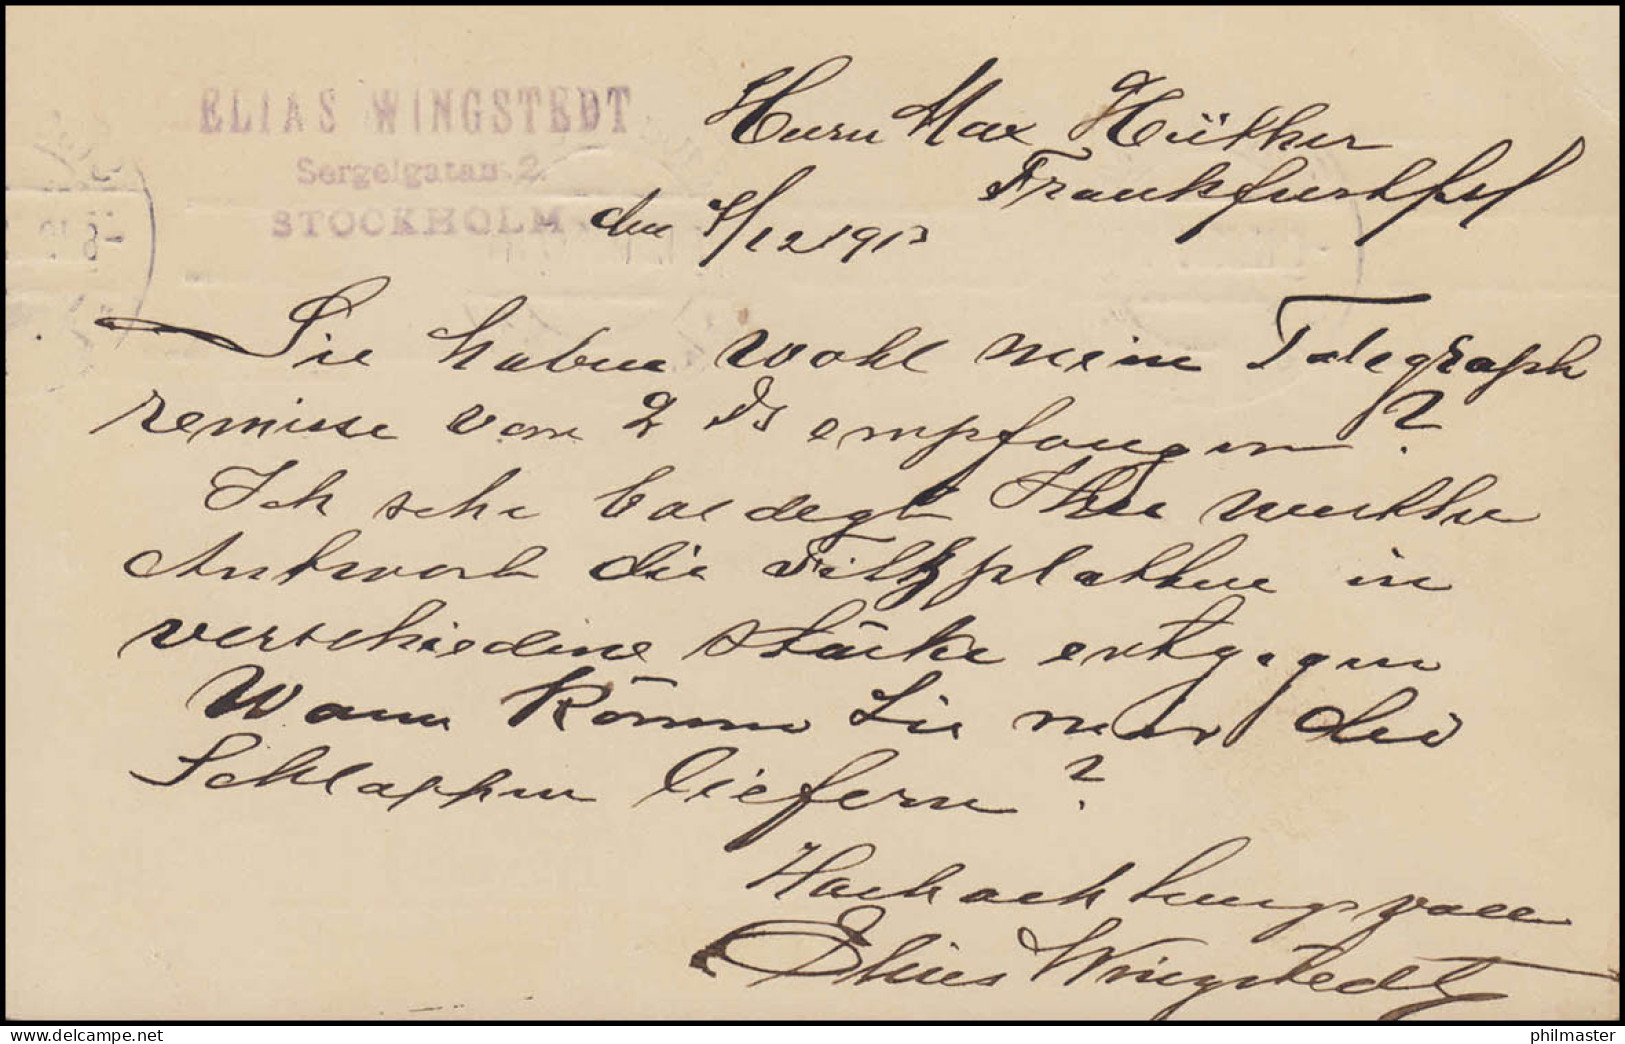 ELIAS WINGSTEDT
Sergelgatan 2.
STOCKHOLM
Herrn Max Hüther
Frankfurt
den /12 1913
Sie haben wohl meine Telegraph
remisse von 2 empfangen?
Ich sehe baldegt Ihre werthe
Antwort die Filtzplatten in
verschiedene Stärke entgegen
Wann können Sie mir die
Schlappen liefern?
Hochachtungsvoll
Elias Wingstedt
philmaster